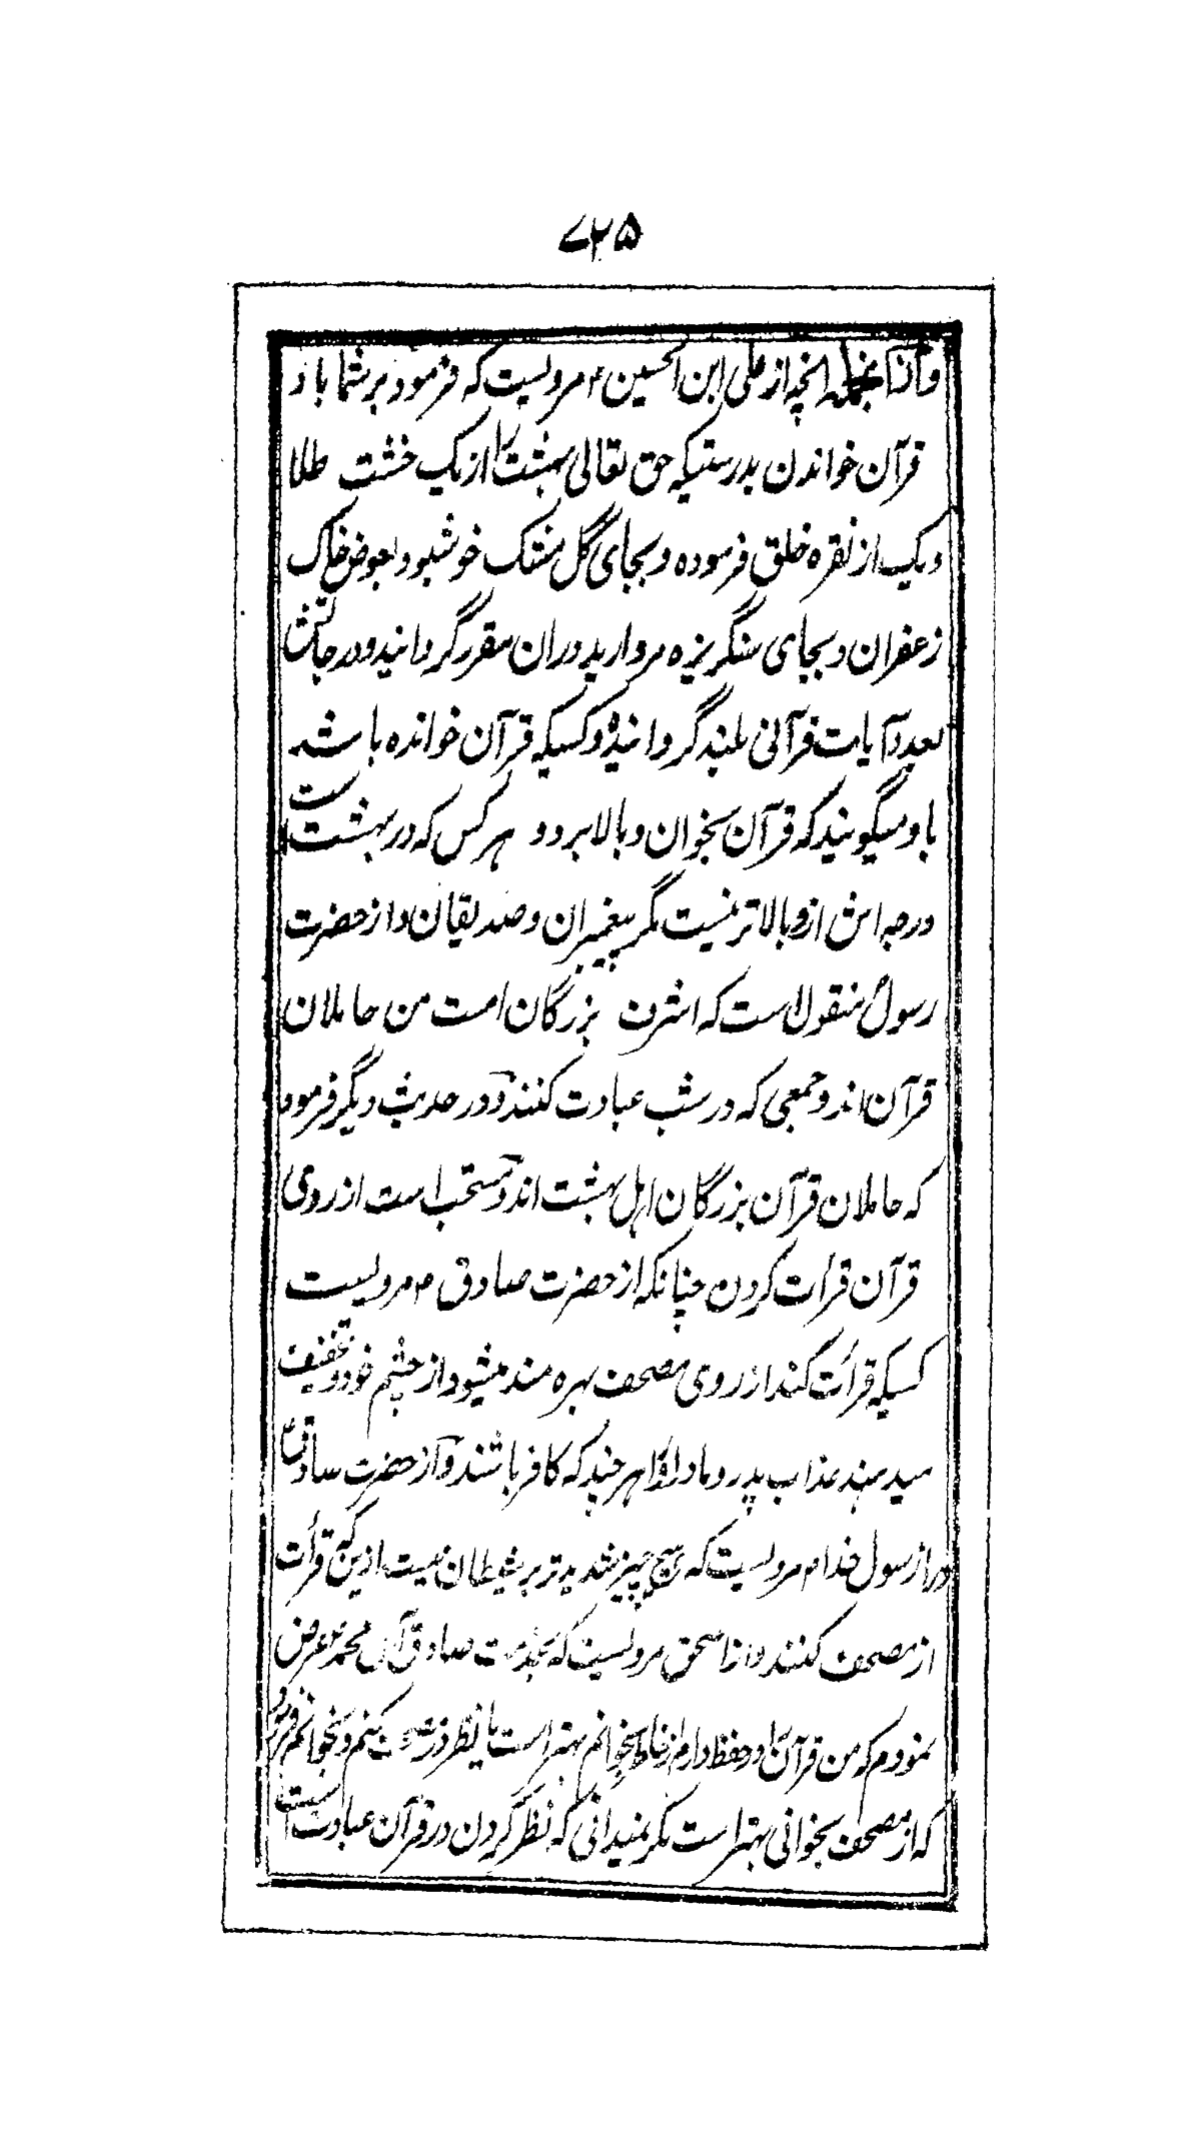 ۷۲۵
وازانجمله انچه از علی ابن الحسین ۴ مرویست که فرمود بر شما باد
قرآن خواندن بدرستیکه حق تعالی بهشت را از یک خشت طلا
و یک از نقره خلق فرموده و بجای گل مشک خوشبو و بعوض خاک
زعفران و بجای سنگریزه مروارید دران مقرر گردانیده و درجاتش
بعدد آیات قرآنی بلند گردانیده و کسیکه قرآن خوانده باشد
باو میگویند که قرآن بخوان و بالا برو و هر کس که در بهشت است
درجه اش ازو بالاتر نیست مگر پیغمبران و صدیقان و از حضرت
رسولؐ منقول است که اشرف بزرگان امت من حاملان
قرآن اند و جمعی که در شب عبادت کنند و در حدیث دیگر فرمود
که حاملان قرآن بزرگان اهل بهشت اند و مستحب است از روی
قرآن قرات کردن چنانکه از حضرت صادق ۴ مرویست
کسیکه قرأت کند از روی مصحف بهره مند میشود از چشم خود و تخفیف
میدهند عذاب پدر و مادر او را هر چند که کافر باشند و از حضرت صادقؑ
و از رسول خدا ۴ مرویست که هیچ چیز شدیدتر بر شیطان نیست ازین که قرأت
از مصحف کنند و از اسحق مرویست که بخدمت صادق آل محمدؑ عرض
نمودم که من قرآن را در حفظ دارم از حفظ بخوانم بهتر است یا نظر در مصحف کنم و بخوانم فرمود
که از مصحف بخوانی بهتر است مگر نمیدانی که نظر کردن در قرآن عبادت است